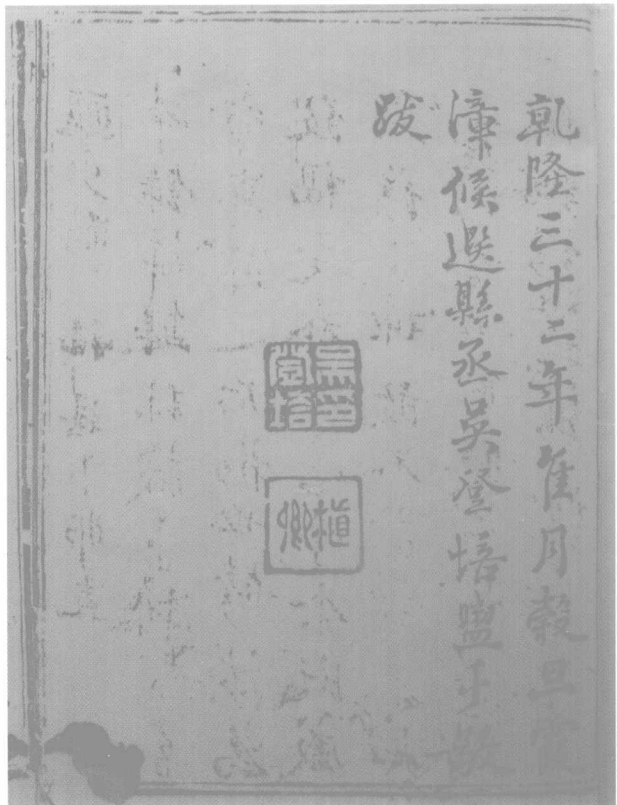 乾隆三十二年佳月穀旦霞
漳候選縣丞吳登培盥手敬
跋
吳印
登培
植卿